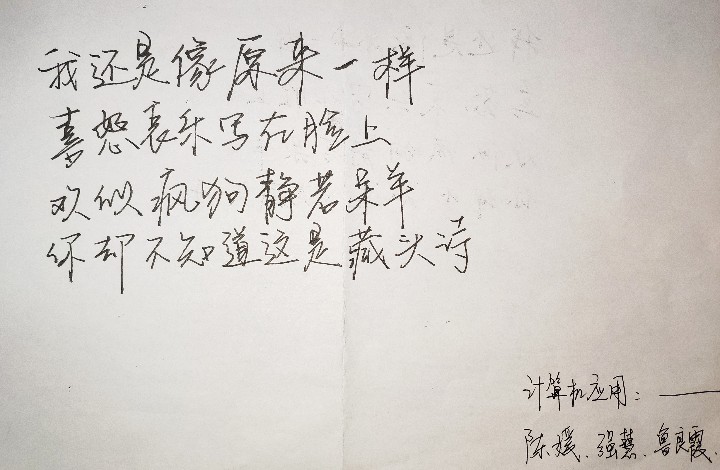 我还是像原来一样
喜怒哀乐写在脸上
欢似疯狗静若呆羊
你却不知道这是藏头诗
计算机应用：——
陈瑗、强慧、鲁良霞